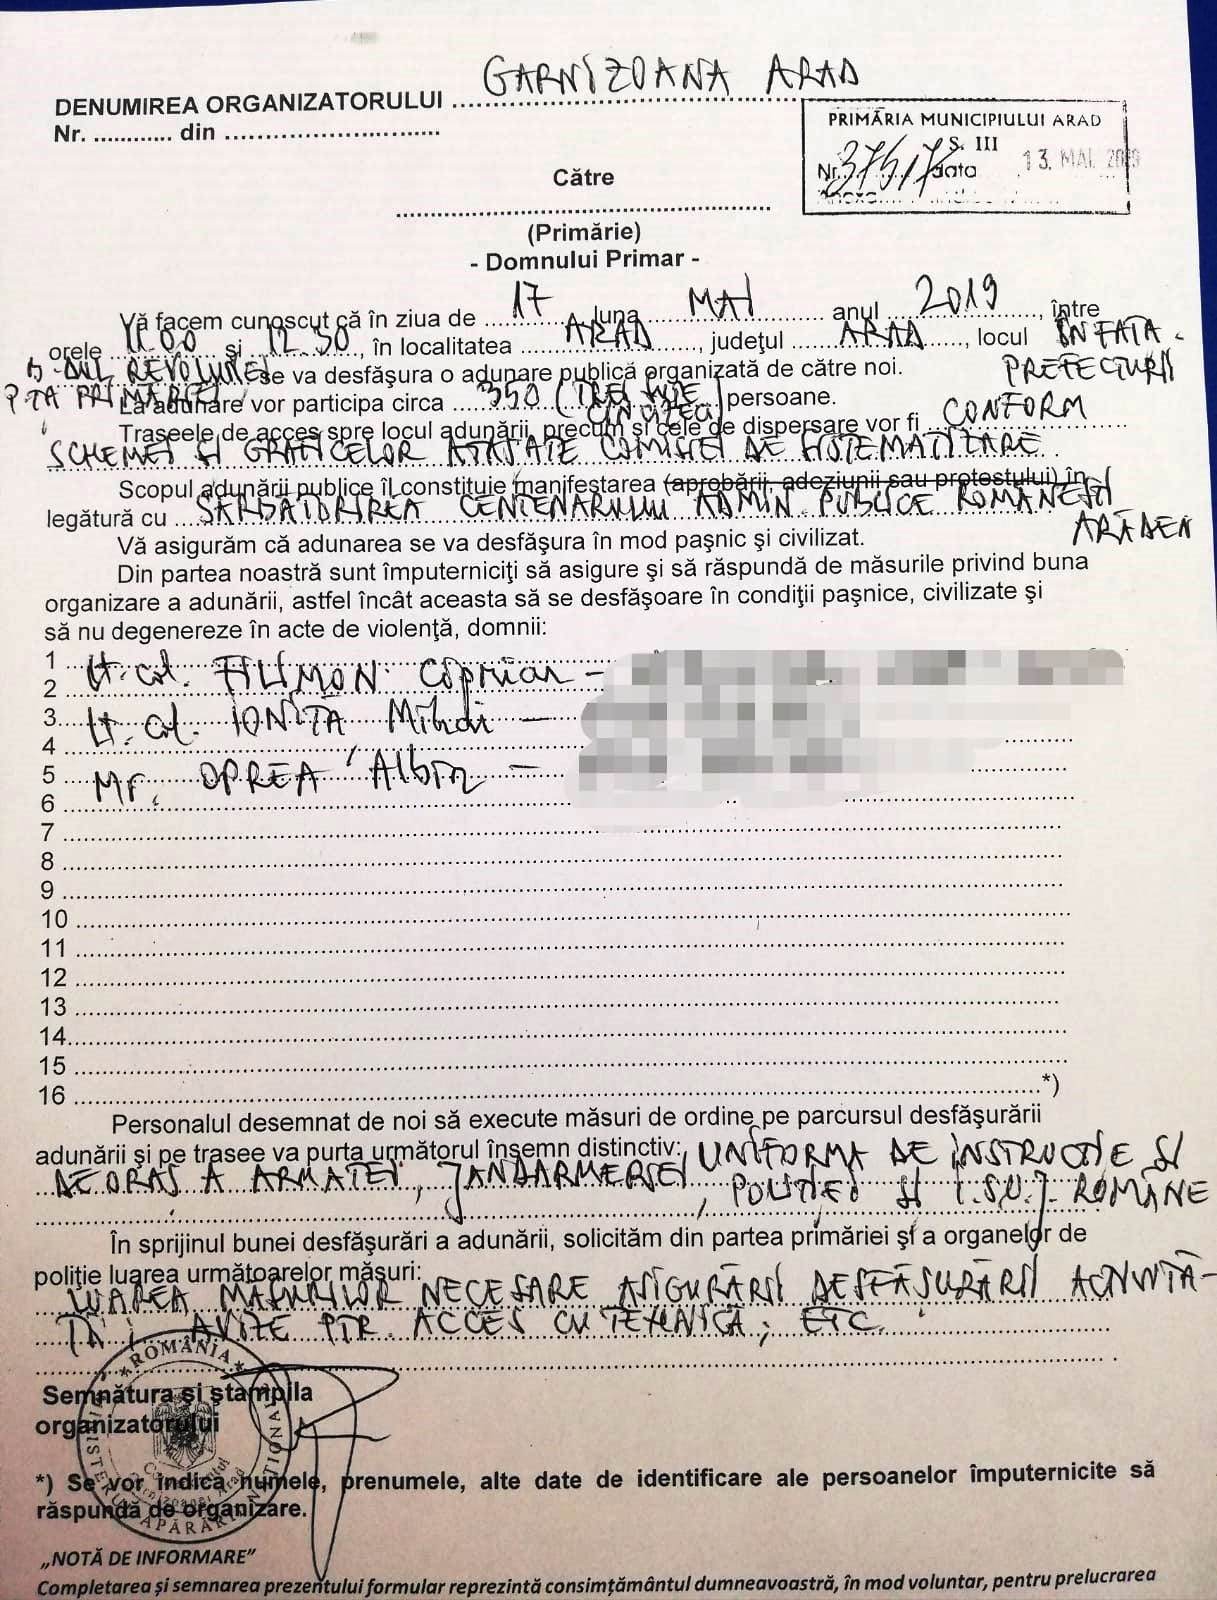 DENUMIREA ORGANIZATORULUI ........ GARNIZOANA ARAD
Nr. ............ din ...............................
PRIMĂRIA MUNICIPIULUI ARAD
S. III
Nr. 37517 data 13. MAI. 2019
Către
(Primărie)
- Domnului Primar -
Vă facem cunoscut că în ziua de 17 luna MAI anul 2019, între
orele 11.00 și 12.30, în localitatea ARAD, județul ARAD, locul ÎN FAȚA
PREFECTURII
B-DUL REVOLUȚIEI se va desfăşura o adunare publică organizată de către noi.
P-ȚA PRIMĂRIEI
La adunare vor participa circa 350 (TREI SUTE CINCIZECI) persoane.
Traseele de acces spre locul adunării, precum şi cele de dispersare vor fi CONFORM
SCHEMEI ȘI GRAFICELOR ATAȘATE COMISIEI DE SISTEMATIZARE
Scopul adunării publice îl constituie manifestarea (aprobării, adeziunii sau protestului) în
legătură cu SĂRBĂTORIREA CENTENARULUI ADMIN PUBLICE ROMÂNEȘTI
ARĂDEN
Vă asigurăm că adunarea se va desfăşura în mod paşnic şi civilizat.
Din partea noastră sunt împuterniciţi să asigure şi să răspundă de măsurile privind buna
organizare a adunării, astfel încât aceasta să se desfăşoare în condiţii paşnice, civilizate şi
să nu degenereze în acte de violenţă, domnii:
1
2 Lt. col. FILIMON Ciprian -
3 Lt. col. IONIȚĂ Mihai -
4
5 Mr. OPREA Albin -
6
7
8
9
10
11
12
13
14
15
16 *)
Personalul desemnat de noi să execute măsuri de ordine pe parcursul desfăşurării
adunării şi pe trasee va purta următorul însemn distinctiv: UNIFORMA DE INSTRUCȚIE ȘI
DE ORAȘ A ARMATEI, JANDARMERIEI, POLIȚIEI ȘI I.S.U.J. ROMÂNE
În sprijinul bunei desfăşurări a adunării, solicităm din partea primăriei şi a organelor de
poliţie luarea următoarelor măsuri:
LUAREA MĂSURILOR NECESARE ASIGURĂRII DESFĂȘURĂRII ACTIVITĂ-
ȚII; AVIZE PTR. ACCES CU TEHNICĂ; ETC.
Semnătura şi ştampila
organizatorului
ROMÂNIA
MINISTERUL APĂRĂRII NAȚIONALE
*) Se vor indica numele, prenumele, alte date de identificare ale persoanelor împuternicite să
răspundă de organizare.
„NOTĂ DE INFORMARE”
Completarea şi semnarea prezentului formular reprezintă consimţământul dumneavoastră, în mod voluntar, pentru prelucrarea